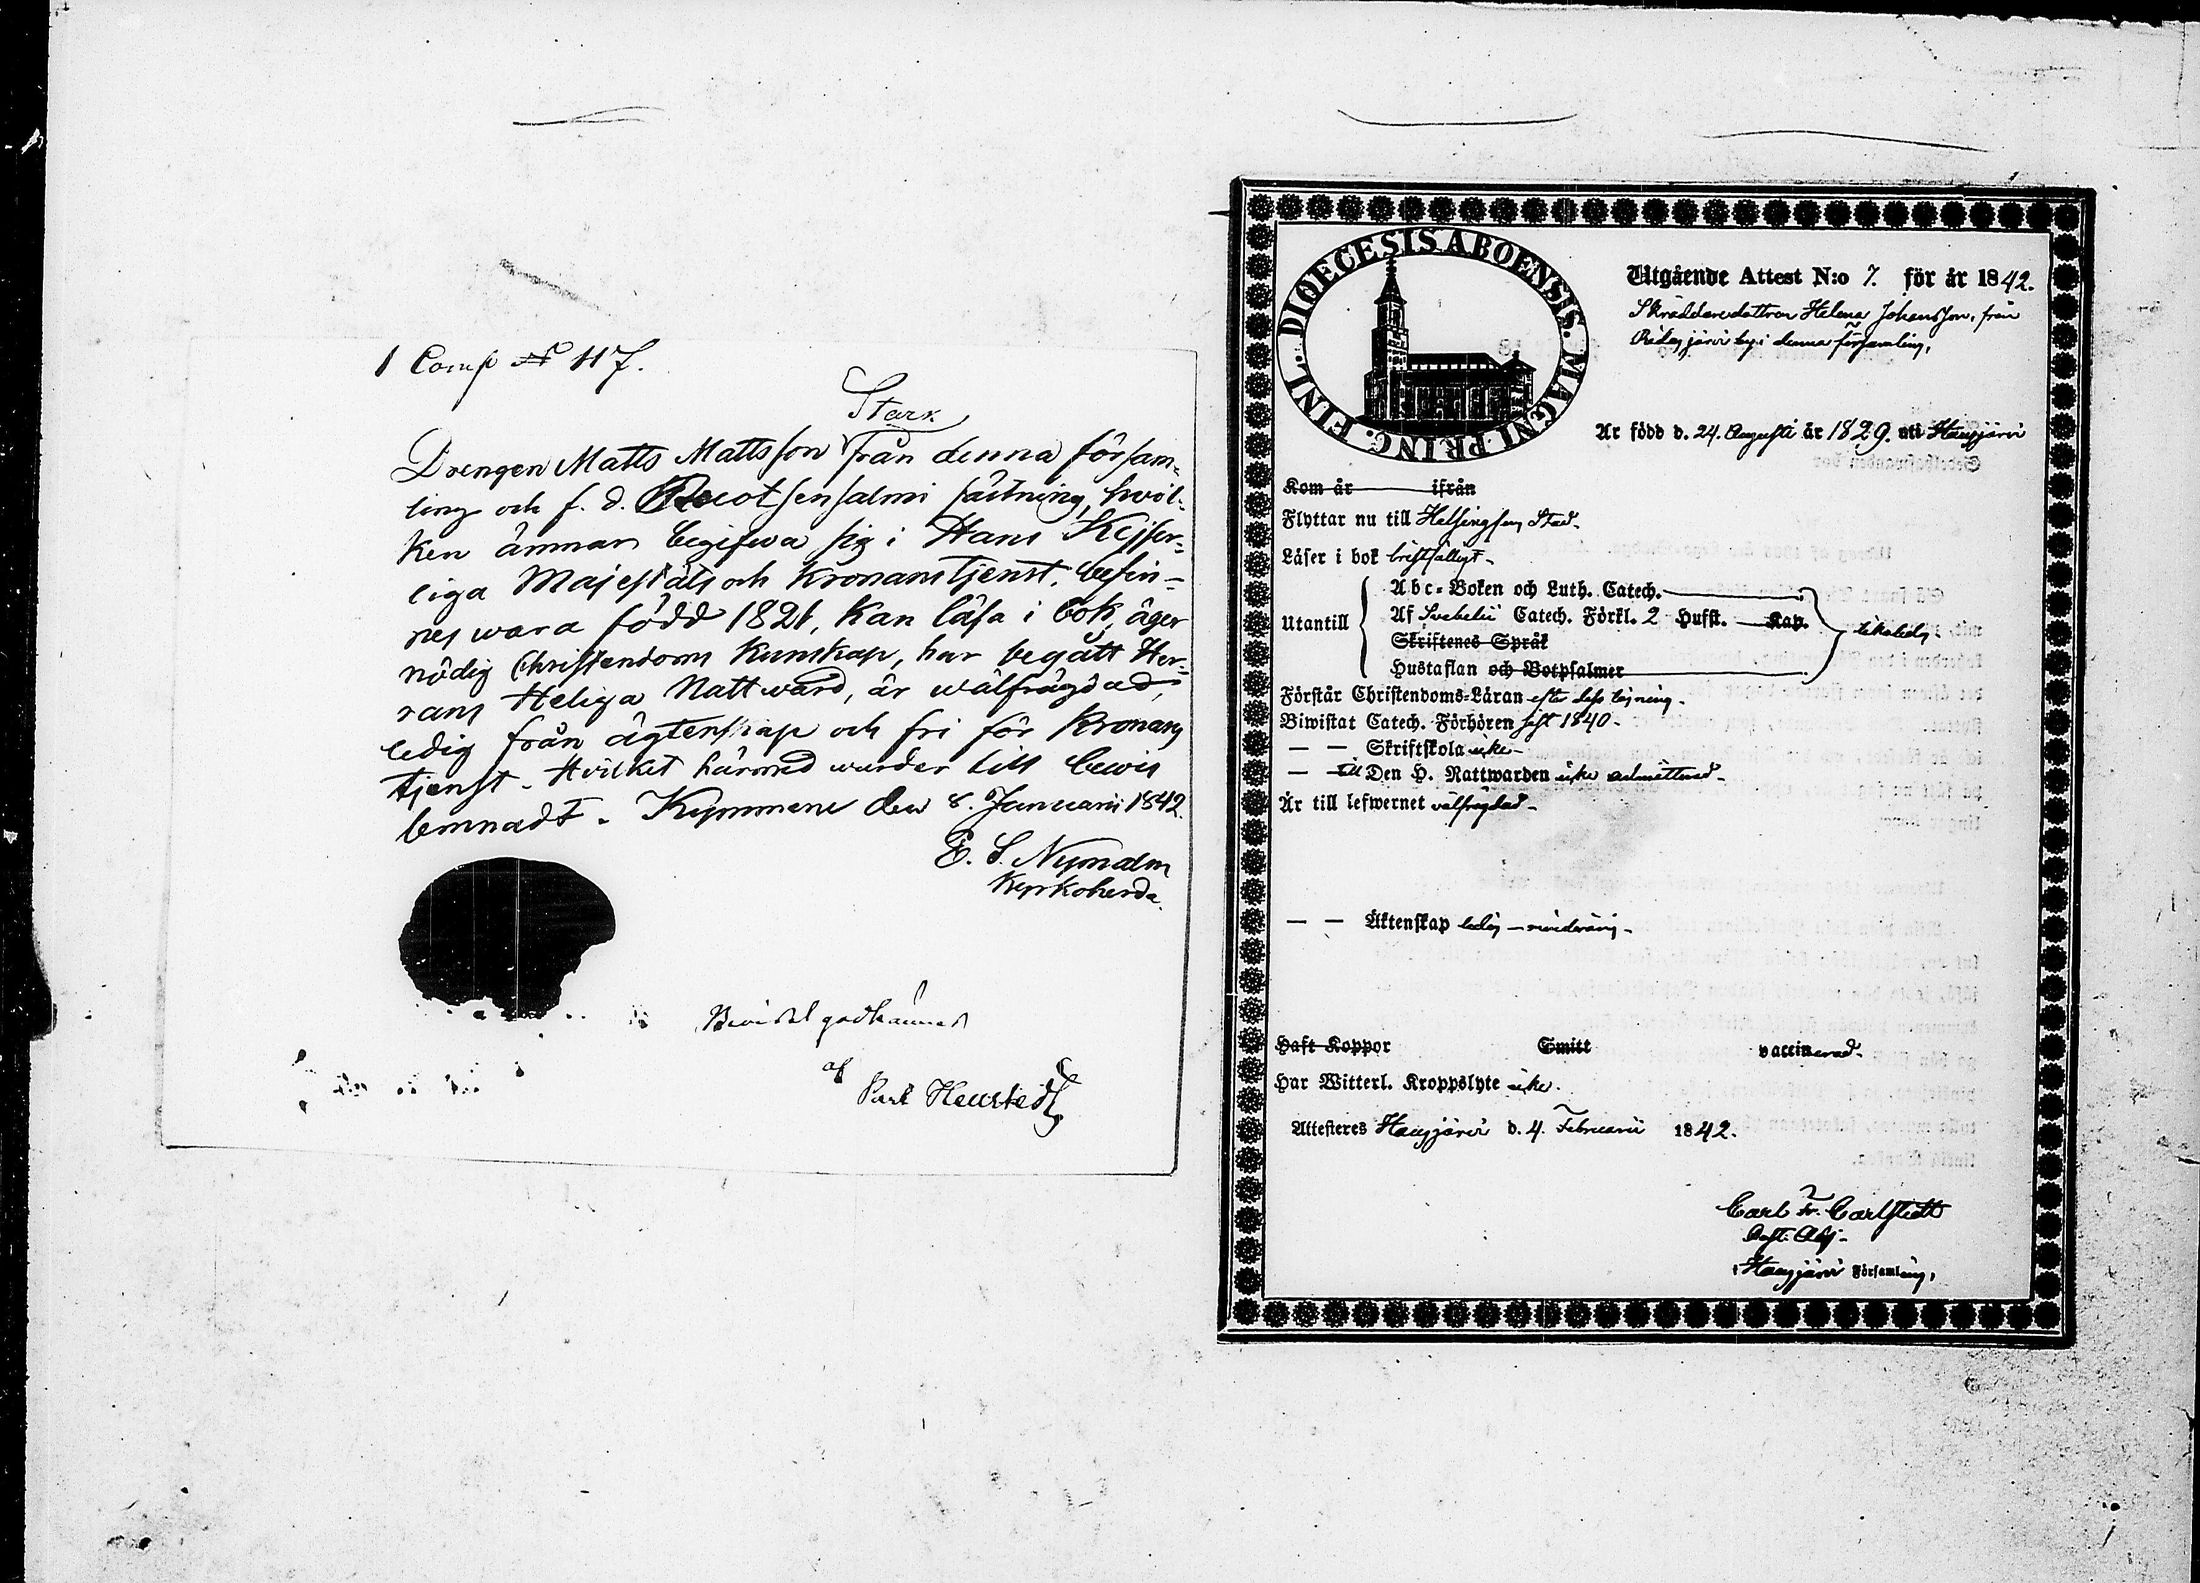 1 Comp № 117.
Stark
Drengen Matts Mattsson från denna försam-
ling och f. d. Ruotsensalmi fästning, hvil-
ken ämnar begifwa sig i Hans Kejser-
liga Majestäts och Kronans tjenst, befin-
nes wara född 1821, kan läsa i bok, äger
nödig Christendoms kunskap, har begått Her-
rans Heliga Nattward, är wälfrägdad,
ledig från ägtenskap och fri för Kronans
tjenst. Hvilket härmed warder till bewis
lemnadt. Kymmene den 8. Januarii 1842.
E. S. Nyman
Kyrkoherde.
Beviset godkännes
af
DIOECESIS ABOENSIS. MAGNI PRINC. FINL.
Utgående Attest N:o 7. för år 1842.
Skräddaredottren Helena Johansson, från
by i denna församling,
Är född d. 24. Augusti år 1829. uti Hausjärvi
Kom år ifrån
Flyttar nu till Helsingfors Stad.
Läser i bok bristfälligt.
Utantill
Abc-Boken och Luth. Catech.
Af Svebelii Catech. Förkl. 2 Hufst. Kap.
Skriftenes Språk
Hustaflan och Botpsalmer
Förstår Christendoms-Läran efter dess läsning.
Biwistat Catech. Förhören sist 1840.
— — Skriftskola icke
— — till Den H. Nattwarden icke admitterad.
Är till lefwernet välfrägdad.
— — Äktenskap ledig — minderårig.
Haft Koppor Smitt vaccinerad.
Har Witterl. Kroppslyte icke.
Attesteres Hausjärvi d. 4. Februarii 1842.
Carl Fr. Carlstedt
i Hausjärvi Församling,